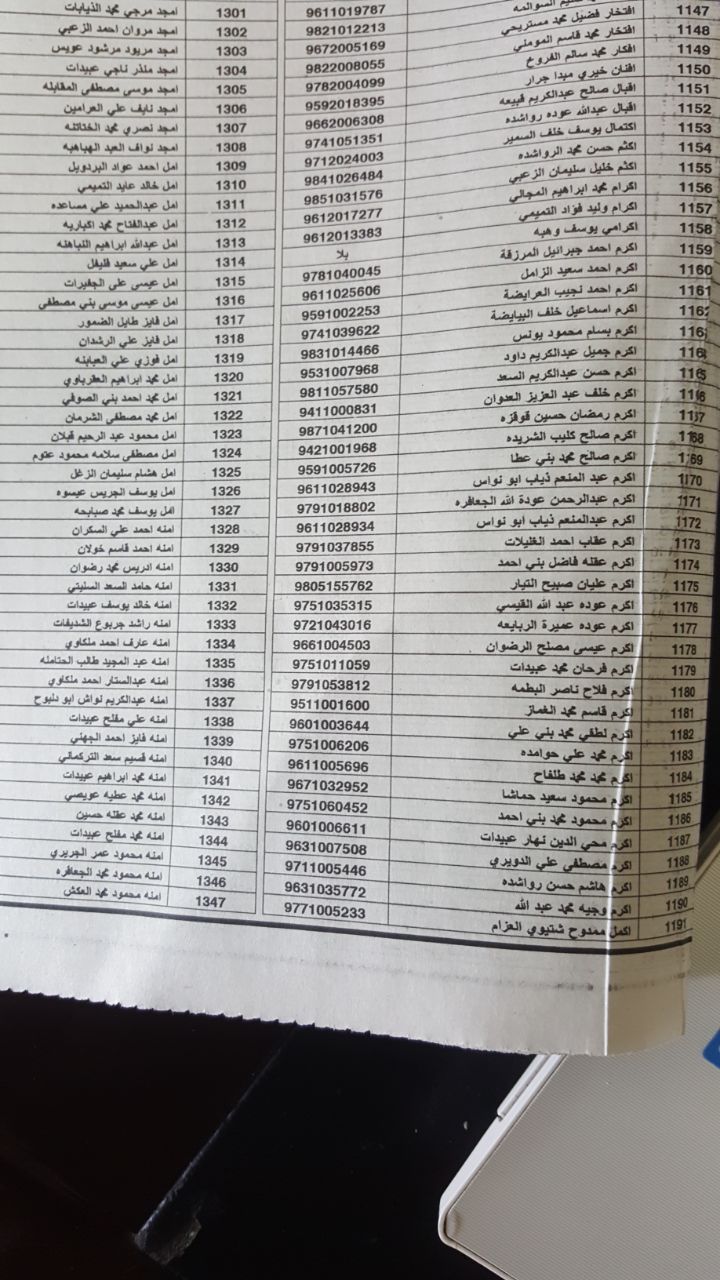 9611019787
9821012213
1147 افتخار فضيل محمد مستريحي 9672005169
1148 افتخار محمد قاسم المومني 9822008055
1149 افكار محمد سالم الفروخ 9782004099
1150 افنان خيري ميدا جرار 9592018395
1151 اقبال صالح عبدالكريم قبيعه 9662006308
1152 اقبال عبدالله عوده رواشده 9741051351
1153 اكتمال يوسف خلف السمير 9712024003
1154 اكثم حسن محمد الرواشده 9841026484
1155 اكثم خليل سليمان الزعبي 9851031576
1156 اكرام محمد ابراهيم المجالي 9612017277
1157 اكرام وليد فؤاد التميمي 9612013383
1158 اكرامي يوسف وهبه بلا
1159 اكرم احمد جبرائيل المرزقة 9781040045
1160 اكرم احمد سعيد الزامل 9611025606
1161 اكرم احمد نجيب العرايضة 9591002253
1162 اكرم اسماعيل خلف البيايضة 9741039622
116 اكرم بسام محمود يونس 9831014466
116 اكرم جميل عبدالكريم داود 9531007968
1165 اكرم حسن عبدالكريم السعد 9811057580
1166 اكرم خلف عبد العزيز العدوان 9411000831
1167 اكرم رمضان حسين قوقزه 9871041200
1168 اكرم صالح كليب الشريده 9421001968
1169 اكرم صالح محمد بني عطا 9591005726
1170 اكرم عبد المنعم ذياب ابو نواس 9611028943
1171 اكرم عبدالرحمن عودة الله الجعافره 9791018802
1172 اكرم عبدالمنعم ذياب ابو نواس 9611028934
1173 اكرم عقاب احمد الغليلات 9791037855
1174 اكرم عقله فاضل بني احمد 9791005973
1175 اكرم عليان صبيح التيار 9805155762
1176 اكرم عوده عبد الله القيسي 9751035315
1177 اكرم عوده عميرة الربايعه 9721043016
1178 اكرم عيسى مصلح الرضوان 9661004503
1179 اكرم فرحان محمد عبيدات 9751011059
1180 اكرم فلاح ناصر البطمه 9791053812
1181 اكرم قاسم محمد الغماز 9511001600
1182 اكرم لطفي محمد بني علي 9601003644
1183 اكرم محمد علي حوامده 9751006206
1184 اكرم محمد محمد طلفاح 9611005696
1185 اكرم محمود سعيد حماشا 9671032952
1186 اكرم محمود محمد بني احمد 9751060452
1187 اكرم محي الدين نهار عبيدات 9601006611
1188 اكرم مصطفى علي الدويري 9631007508
1189 اكرم هاشم حسن رواشده 9711005446
1190 اكرم وجيه محمد عبد الله 9631035772
1191 اكمل ممدوح شتيوي العزام 9771005233
1301 امجد مرجي محمد الذيابات
1302 امجد مروان احمد الزعبي
1303 امجد مريود مرشود عويس
1304 امجد منذر ناجي عبيدات
1305 امجد موسى مصطفى المقابله
1306 امجد نايف علي العرامين
1307 امجد نصري محمد الختاتنه
1308 امجد نواف العبد الهباهبه
1309 امل احمد عواد البردويل
1310 امل خالد عايد التميمي
1311 امل عبدالحميد علي مساعده
1312 امل عبدالفتاح محمد اكباريه
1313 امل عبدالله ابراهيم النباهنه
1314 امل علي سعيد فليفل
1315 امل عيسى علي الجفيرات
1316 امل عيسى موسى بني مصطفى
1317 امل فايز طايل الضمور
1318 امل فايز علي الرشدان
1319 امل فوزي علي العبابنه
1320 امل محمد ابراهيم العقرباوي
1321 امل محمد احمد بني الصوفي
1322 امل محمد مصطفى الشرمان
1323 امل محمود عبد الرحيم قبلان
1324 امل مصطفى سلامه محمود عتوم
1325 امل هشام سليمان الزغل
1326 امل يوسف الجريس عيسوه
1327 امل يوسف محمد صبابحه
1328 امنه احمد علي السكران
1329 امنه احمد قاسم خولان
1330 امنه ادريس محمد رضوان
1331 امنه حامد السعد السليتي
1332 امنه خالد يوسف عبيدات
1333 امنه راشد جربوع الشديفات
1334 امنه عارف احمد ملكاوي
1335 امنه عبد المجيد طالب الحتامله
1336 امنه عبدالستار احمد ملكاوي
1337 امنه عبدالكريم نواش ابو دلبوح
1338 امنه علي مفلح عبيدات
1339 امنه فايز احمد الجهني
1340 امنه قسيم سعد التركماني
1341 امنه محمد ابراهيم عبيدات
1342 امنه محمد عطيه عويصي
1343 امنه محمد عقله حسين
1344 امنه محمد مفلح عبيدات
1345 امنه محمود عمر الجريري
1346 امنه محمود محمد الجعافره
1347 امنه محمود محمد العكش